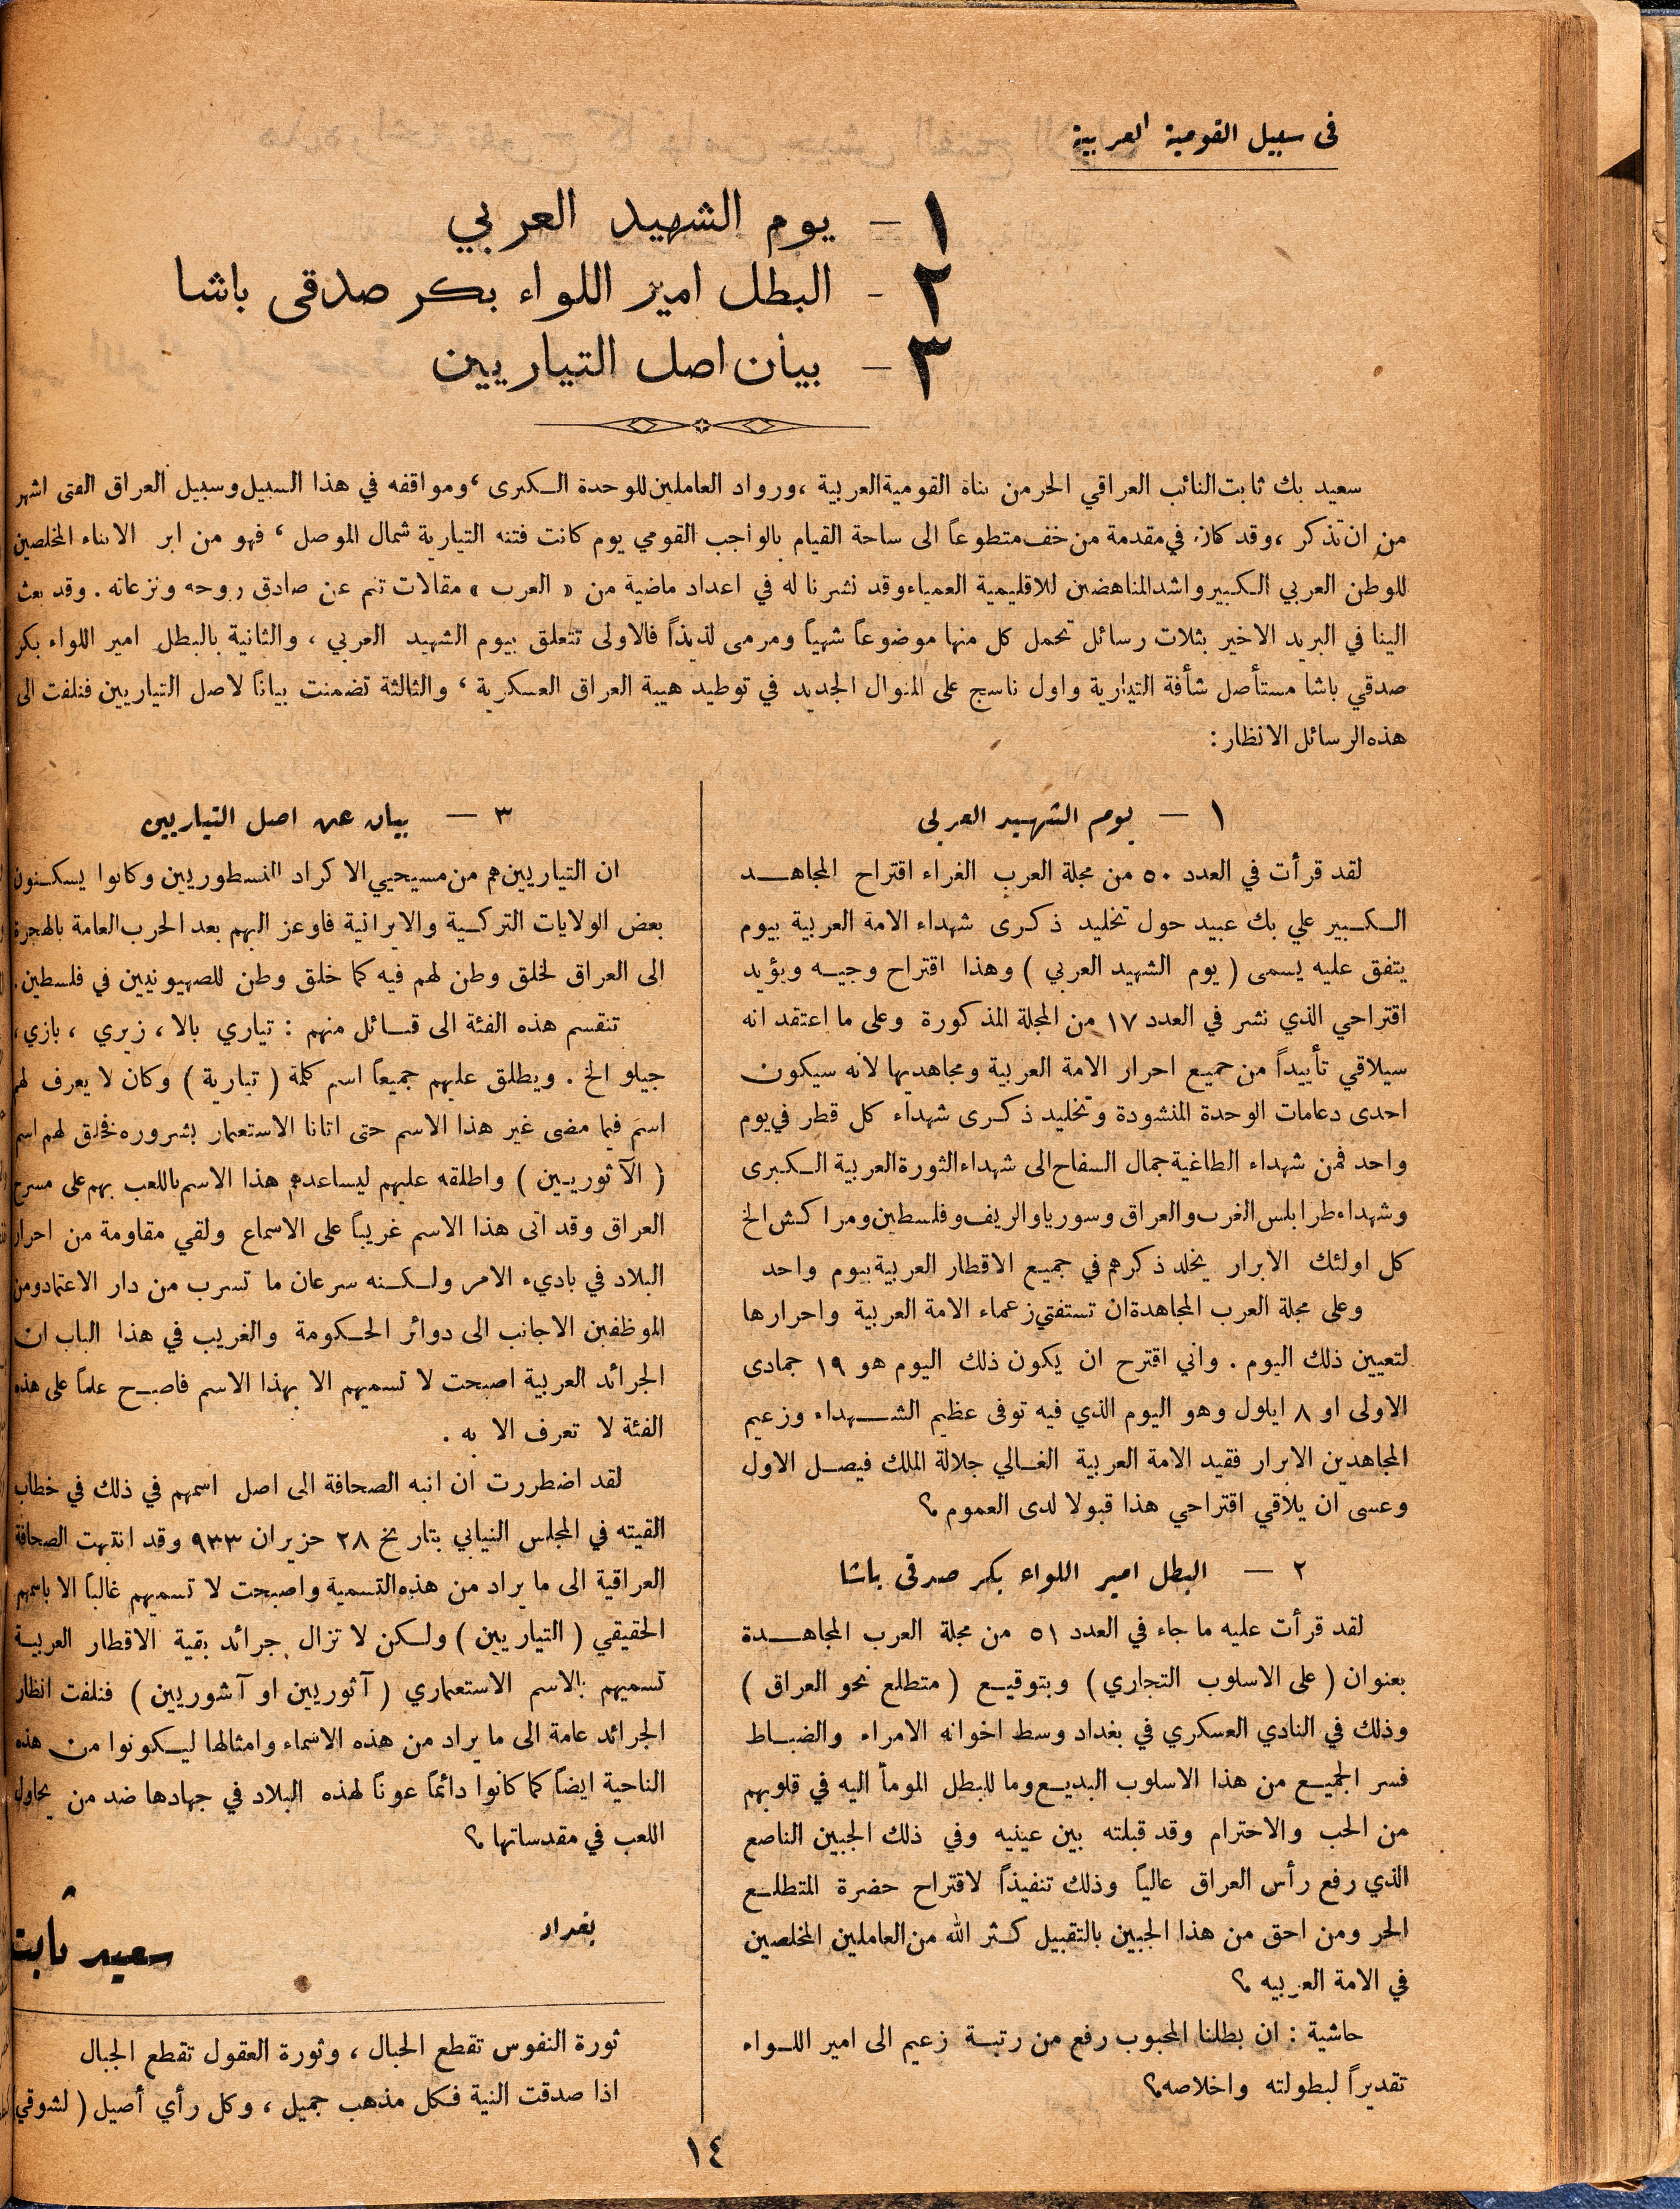 في سبيل القومية العربية
١ — يوم الشهيد العربي
٢ - البطل امير اللواء بكر صدقي باشا
٣ — بيان اصل التياريين
سعيد بك ثابت النائب العراقي الحر من بناة القومية العربية ، ورواد العاملين للوحدة الكبرى ، ومواقفه في هذا السبيل وسبيل العراق الفتى اشهر
من ان تذكر ، وقد كان في مقدمة من خف متطوعاً الى ساحة القيام بالواجب القومي يوم كانت فتنه التيارية شمال الموصل ، فهو من ابر الابناء المخلصين
للوطن العربي الكبير واشد المناهضين للاقليمية العمياء وقد نشرنا له في اعداد ماضية من « العرب » مقالات تنم عن صادق روحه ونزعاته . وقد بعث
الينا في البريد الاخير بثلات رسائل تحمل كل منها موضوعاً شهياً ومرمى لذيذاً فالاولى تتعلق بيوم الشهيد العربي ، والثانية بالبطل امير اللواء بكر
صدقي باشا مستأصل شأفة التيارية واول ناسج على المنوال الجديد في توطيد هيبة العراق العسكرية ، والثالثة تضمنت بياناً لاصل التياريين فنلفت الى
هذه الرسائل الانظار :
١ — يوم الشهيد العربي
لقد قرأت في العدد ٥٠ من مجلة العرب الغراء اقتراح المجاهد
الكبير علي بك عبيد حول تخليد ذكرى شهداء الامة العربية بيوم
يتفق عليه يسمى ( يوم الشهيد العربي ) وهذا اقتراح وجيه ويؤيد
اقتراحي الذي نشر في العدد ١٧ من المجلة المذكورة وعلى ما اعتقد انه
سيلاقي تأييداً من جميع احرار الامة العربية ومجاهديها لانه سيكون
احدى دعامات الوحدة المنشودة وتخليد ذكرى شهداء كل قطر في يوم
واحد فمن شهداء الطاغية جمال السفاح الى شهداء الثورة العربية الكبرى
وشهداء طرابلس الغرب والعراق وسوريا والريف وفلسطين ومراكش الخ
كل اولئك الابرار يخلد ذكرهم في جميع الاقطار العربية بيوم واحد
وعلى مجلة العرب المجاهدة ان تستفتي زعماء الامة العربية واحرارها
لتعيين ذلك اليوم . واني اقترح ان يكون ذلك اليوم هو ١٩ جمادى
الاولى او ٨ ايلول وهو اليوم الذي فيه توفى عظيم الشهداء وزعيم
المجاهدين الابرار فقيد الامة العربية الغالي جلالة الملك فيصل الاول
وعسى ان يلاقي اقتراحي هذا قبولا لدى العموم ؟
٢ — البطل امير اللواء بكر صدقي باشا
لقد قرأت عليه ما جاء في العدد ٥١ من مجلة العرب المجاهدة
بعنوان ( على الاسلوب التجاري ) وبتوقيع ( متطلع نحو العراق )
وذلك في النادي العسكري في بغداد وسط اخوانه الامراء والضباط
فسر الجميع من هذا الاسلوب البديع وما للبطل المومأ اليه في قلوبهم
من الحب والاحترام وقد قبلته بين عينيه وفي ذلك الجبين الناصع
الذي رفع رأس العراق عالياً وذلك تنفيذاً لاقتراح حضرة المتطلع
الحر ومن احق من هذا الجبين بالتقبيل كثر الله من العاملين المخلصين
في الامة العربيه ؟
حاشية : ان بطلنا المحبوب رفع من رتبة زعيم الى امير اللواء
تقديراً لبطولته واخلاصه؟
٣ — بيان عن اصل التياريين
ان التياريين هم من مسيحيي الاكراد النسطوريين وكانوا يسكنون
بعض الولايات التركية والايرانية فاوعز اليهم بعد الحرب العامة بالهجرة
الى العراق لخلق وطن لهم فيه كما خلق وطن للصهيونيين في فلسطين .
تنقسم هذه الفئة الى قسائل منهم : تياري بالا ، زيري ، بازي ،
جيلو الخ . ويطلق عليهم جميعاً اسم كلمة ( تيارية ) وكان لا يعرف لهم
اسم فيما مضى غير هذا الاسم حتى اتانا الاستعمار بشروره فخلق لهم اسم
( الآثوريين ) واطلقه عليهم ليساعدهم هذا الاسم باللعب بهم على مسرح
العراق وقد اتى هذا الاسم غريباً على الاسماع ولقي مقاومة من احرار
البلاد في باديء الامر ولكنه سرعان ما تسرب من دار الاعتماد ومن
الموظفين الاجانب الى دوائر الحكومة والغريب في هذا الباب ان
الجرائد العربية اصبحت لا تسميهم الا بهذا الاسم فاصبح علماً على هذه
الفئة لا تعرف الا به .
لقد اضطررت ان انبه الصحافة الى اصل اسمهم في ذلك في خطاب
القيته في المجلس النيابي بتاريخ ٢٨ حزيران ٩٣٣ وقد انتبهت الصحافة
العراقية الى ما يراد من هذه التسمية واصبحت لا تسميهم غالباً الا باسمهم
الحقيقي ( التياريين ) ولكن لا تزال جرائد بقية الاقطار العربية
تسميهم بالاسم الاستعماري ( آثوريين او آشوريين ) فنلفت انظار
الجرائد عامة الى ما يراد من هذه الاسماء وامثالها ليكونوا من هذه
الناحية ايضاً كما كانوا دائماً عوناً لهذه البلاد في جهادها ضد من يحاول
اللعب في مقدساتها ؟
بغداد
سعيد ثابت
ثورة النفوس تقطع الحبال ، وثورة العقول تقطع الجبال
اذا صدقت النية فكل مذهب جميل ، وكل رأي أصيل ( لشوقي
١٤